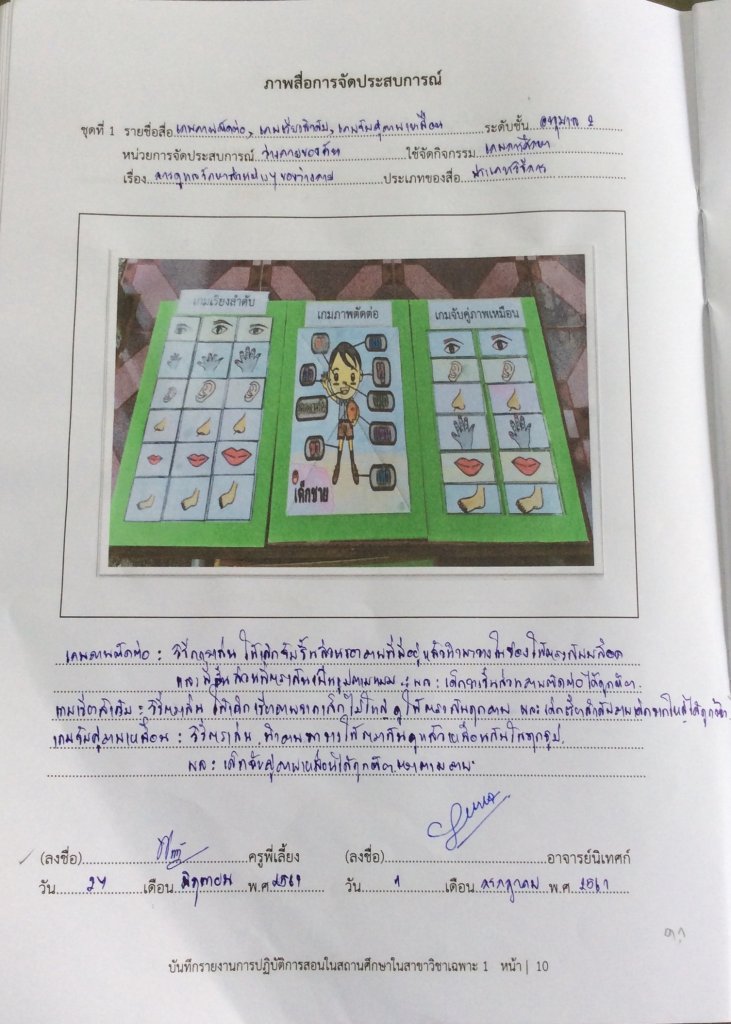 ภาพสื่อการจัดประสบการณ์
ชุดที่ 1 รายชื่อสื่อ เกมภาพตัดต่อ, เกมเรียงลำดับ, เกมจับคู่ภาพเหมือน ระดับชั้น อนุบาล 2
หน่วยการจัดประสบการณ์ ร่างกายของฉัน ใช้จัดกิจกรรม เกมการศึกษา
เรื่อง การดูแลรักษาส่วนต่างๆ ของร่างกาย ประเภทของสื่อ
เกมเรียงลำดับ
เกมภาพตัดต่อ
เกมจับคู่ภาพเหมือน
เด็กชาย
เกมภาพตัดต่อ : วิธีการเล่น ให้เด็กจับชิ้นส่วนของภาพที่มีอยู่แล้วนำมาวางในช่องให้ตรงกับบล็อค
ผล : เด็กวางชิ้นส่วนภาพตัดต่อได้ถูกต้อง
เกมเรียงลำดับ : วิธีการเล่น ให้เด็กเรียงภาพจากเล็กไปใหญ่
เกมจับคู่ภาพเหมือน : วิธีการเล่น นำภาพมาวางให้ตรงกันดูแล้วเหมือนกันในทุกรูป
ผล : เด็กจับคู่ภาพเหมือนได้ถูกต้องตรงตามภาพ
(ลงชื่อ) ครูพี่เลี้ยง (ลงชื่อ) อาจารย์นิเทศก์
วัน 27 เดือน มิถุนายน พ.ศ 2561 วัน 1 เดือน กรกฎาคม พ.ศ. 2561
บันทึกรายงานการปฏิบัติการสอนในสถานศึกษาในสาขาวิชาเฉพาะ 1 หน้า | 10